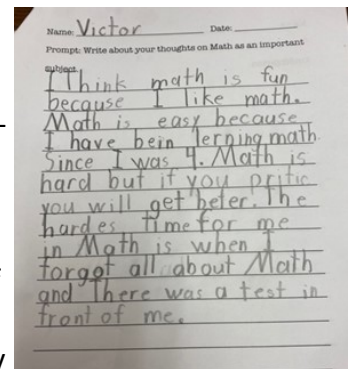 Name: Victor Date:
Prompt: Write about your thoughts on Math as an important
subject.
I Think math is fun
because I like math.
Math is easy because
I have bein lerning math.
Since I was 4. Math is
hard but if you pritic
you will get beter. The
hardes time for me
in Math is when I
forgot all about Math
and There was a test in
front of me.